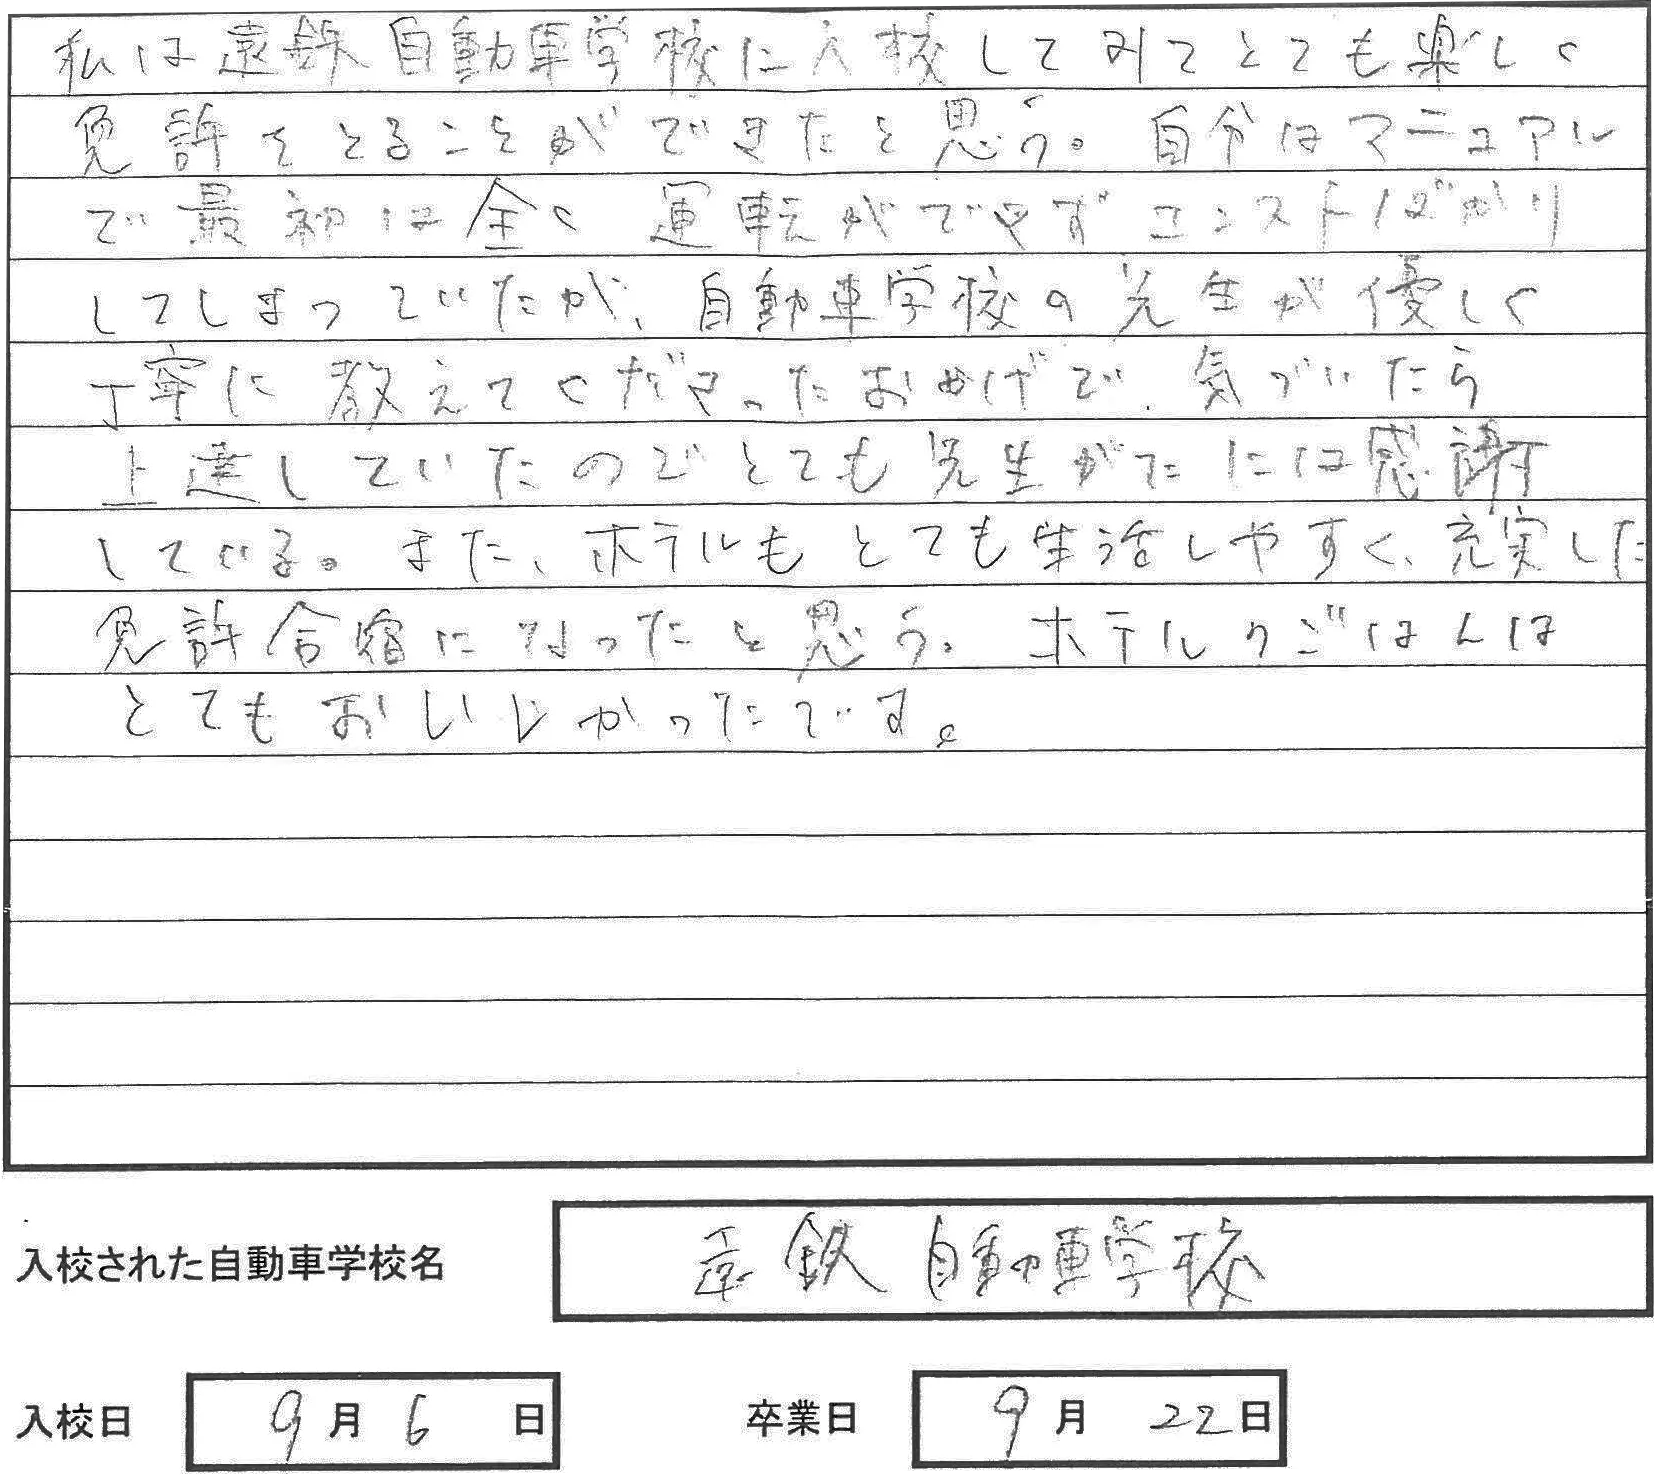 私は遠鉄自動車学校に入校してみてとても楽しく
免許をとることができたと思う。自分はマニュアル
で最初は全く運転ができずエンストばかり
してしまっていたが、自動車学校の先生が優しく
丁寧に教えてくださったおかげで、気づいたら
上達していたのでとても先生がたには感謝
している。また、ホテルもとても生活しやすく、充実した
免許合宿になったと思う。ホテルのごはんは
とてもおいしかったです。
入校された自動車学校名 遠鉄自動車学校
入校日 9月6日 卒業日 9月22日